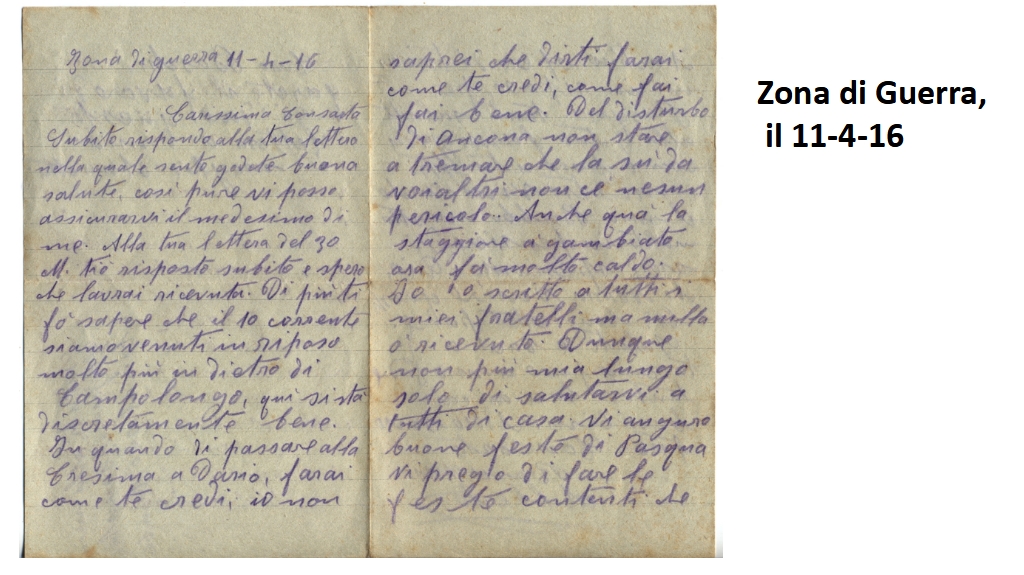 Zona di guerra 11-4-16
Carissima Consorte
Subito rispondo alla tua lettera
nella quale sento godete buona
salute, così pure vi posso
assicurarvi il medesimo di
me. Alla tua lettera del 30
M. tiò risposto subito e spero
che lavrai ricevuta. Di più ti
fò sapere che il 10 corrente
siamo venuti in riposo
molto più in dietro di
Campolongo, qui si stà
discretamente bene.
In quando di passare alla
Cresima a Dario, farai
come te credi, io non
saprei che dirti farai
come te credi, come fai
fai bene. Del disturbo
di Ancona non stare
a tremare che la su da
voialtri non cè nesun
pericolo. Anche quà la
staggione à gambiato
ora fà molto caldo.
Io ò scritto a tutti i
miei fratelli ma nulla
ò ricevuto. Dunque
non più mia lungo
solo di salutarvi a
tutti di casa. Vi auguro
buone feste di Pasqua
vi prego di fare le
feste contenti che
Zona di Guerra,
il 11-4-16